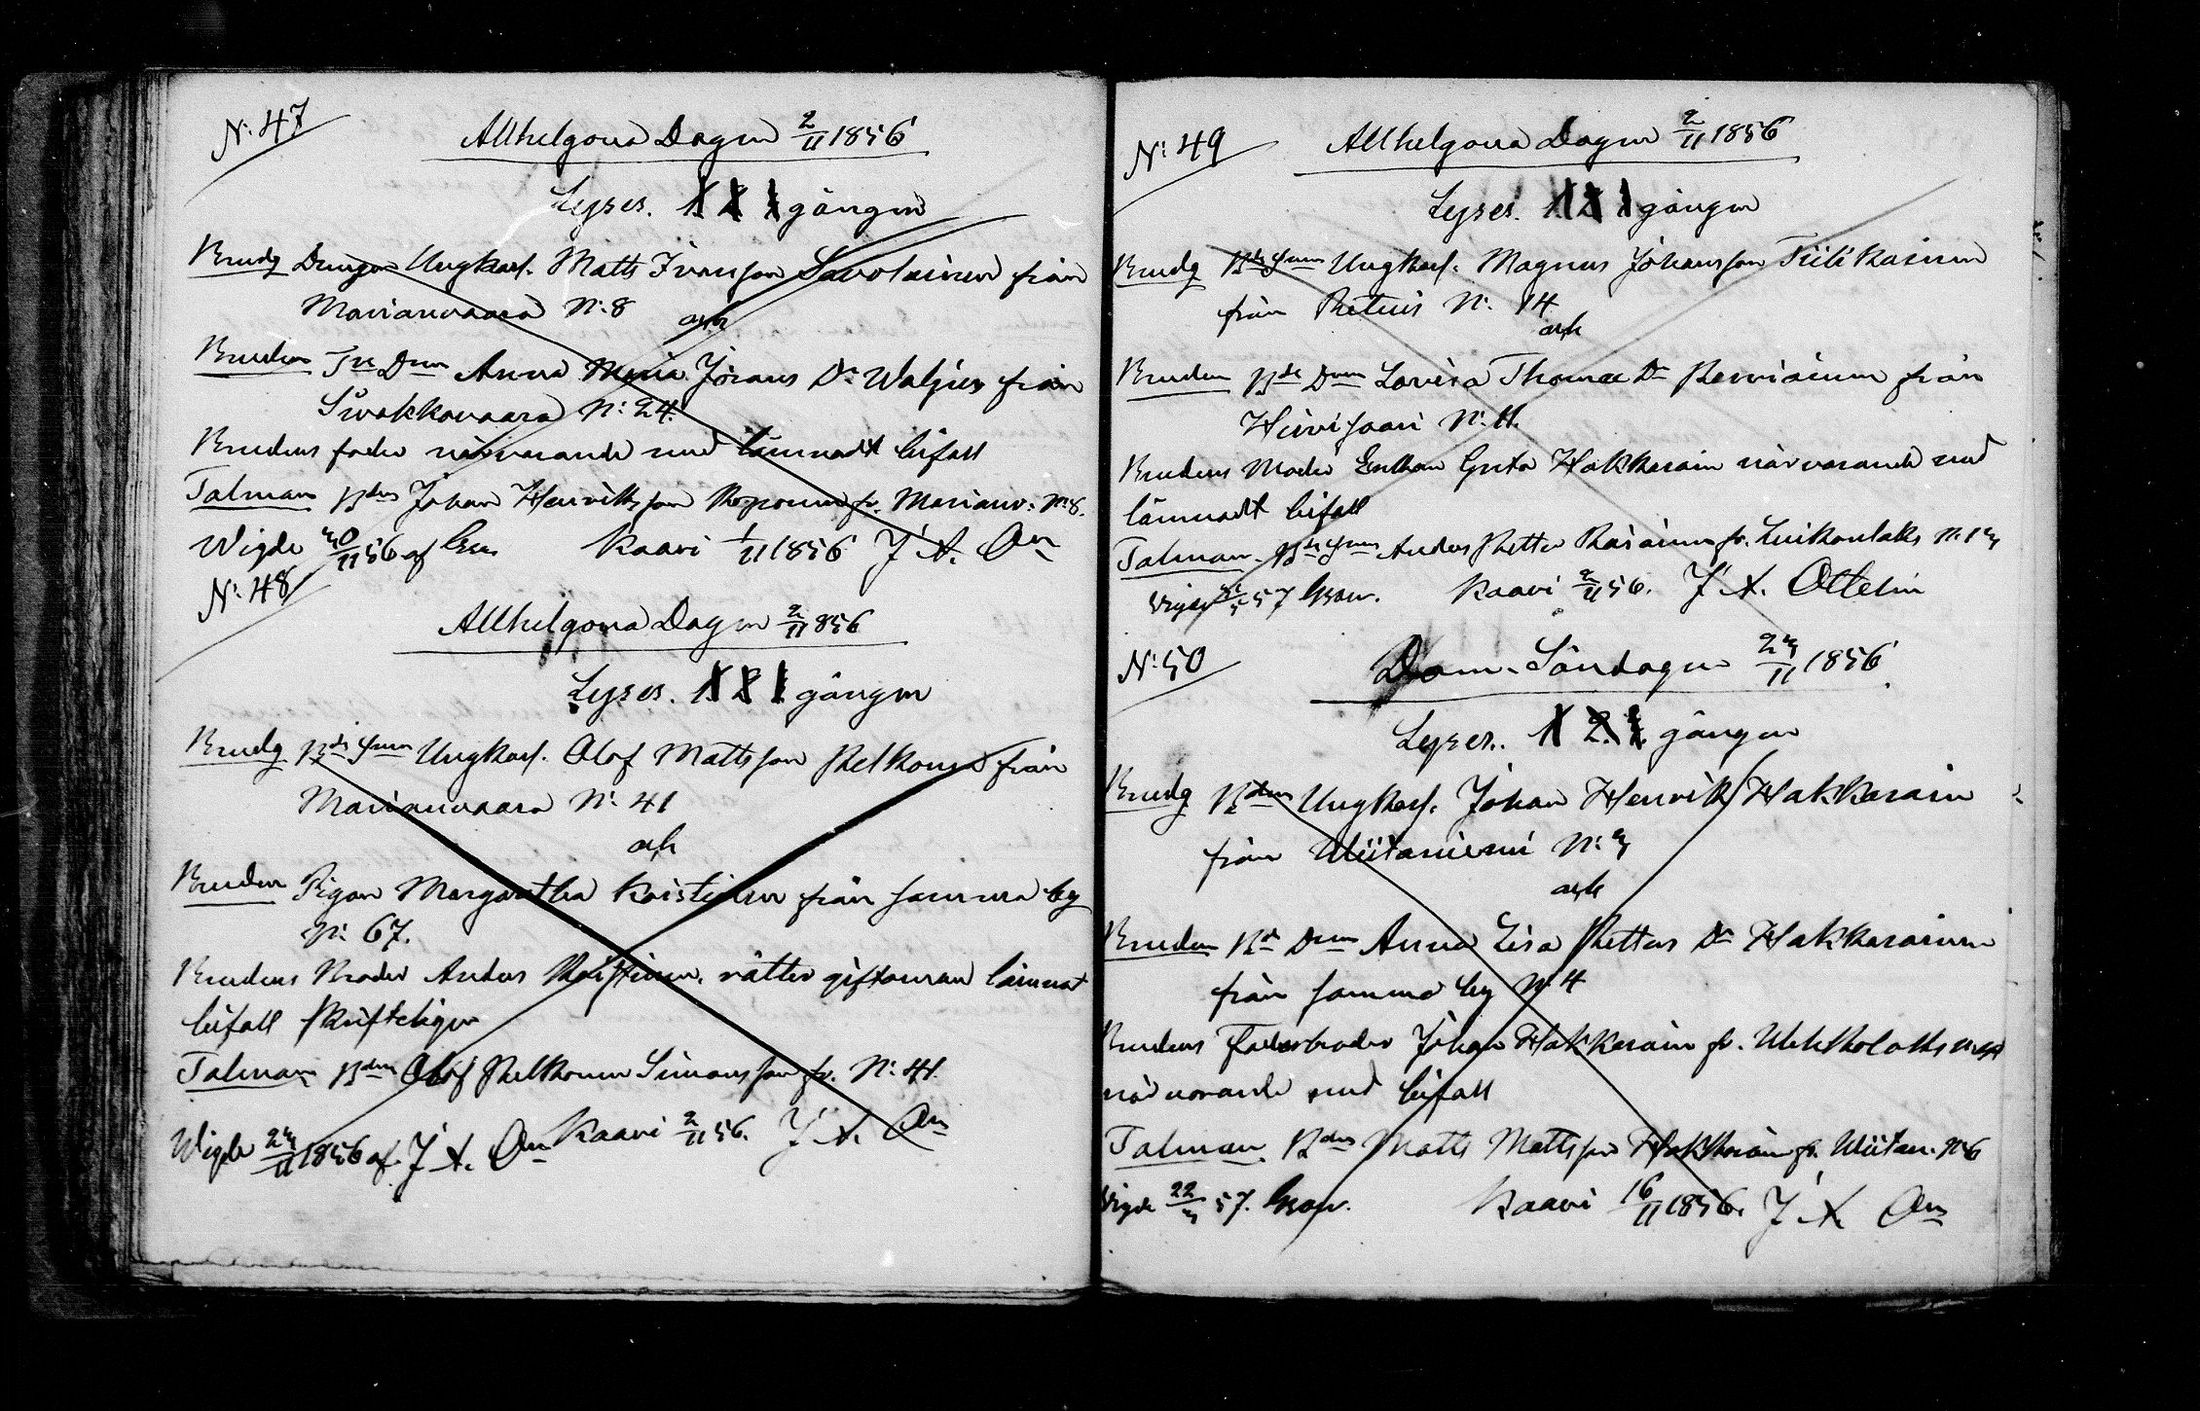 N: 47
Allhelgona Dagen 2/11 1856
Lyses. 1 2 3 gången
Brudg Drengen Ungkarl. Matts Ivarsson Savolainen från
Marianvaara N: 8
och
Bruden Dren Anna Maria Jörans Dr Waljus från
Siwakkavaara N: 24.
Brudens fader närvarande med lämnadt bifall
Talman Bdn Johan Henriksson Roponen fr. Marianv: N: 8.
Wigde 30/11 56 af Kaavi 1/11 1856 J. A. On
N: 48
Allhelgona Dagen 2/11 856
Lyses. 1 2 3 gången
Brudg Bde Snn Ungkarl. Olof Mattsson Pelkonen från
Marianvaara N: 41
och
Bruden Pigan Margaretha Koistinen från samma by
N: 67.
Brudens Broder Anders Koistinen, rätter giftoman lämnat
bifall skrifteligen
Talman Bdn Olof Pelkonen Simonsson fr. N: 41.
Wigde 23/11 1856 af J. A. On Kaavi 2/11 56. J. A. On
N: 49
Allhelgona Dagen 2/11 1856
Lyses. 1 2 3 gången
Brudg Bde Snn Ungkarl. Magnus Johansson Tiilikainen
från Retuis N: 14
och
Bruden Bde Dren Lovisa Thomæ Dr från
Hirvisaari N: 11.
Brudens Moder Enkan Greta Hakkarain närvarande med
lämnadt bifall
Talman Bde Snn Anders Petter Räsänen fr. Luikonlaks N: 13
Vigde 57 Kaavi 2/11 56. J. A. Ottelin
N: 50
Dom-Söndagen 23/11 1856
Lyses. 1 2. 3. gången
Brudg Bdn Ungkarl. Johan Henrik Hakkarain
från Wiitaniemi N: 3
och
Bruden Bd Dren Anna Lisa Petters Dr Hakkarainen
från samma by N: 4
Brudens Faderbroder Johan Hakkarain fr.
närvarande med bifall
Talman Bdn Matts Mattsson Hakkarain fr. Wiitan. N: 6
Vigde 22/3 57. Kaavi 16/11 1856. J. A. On